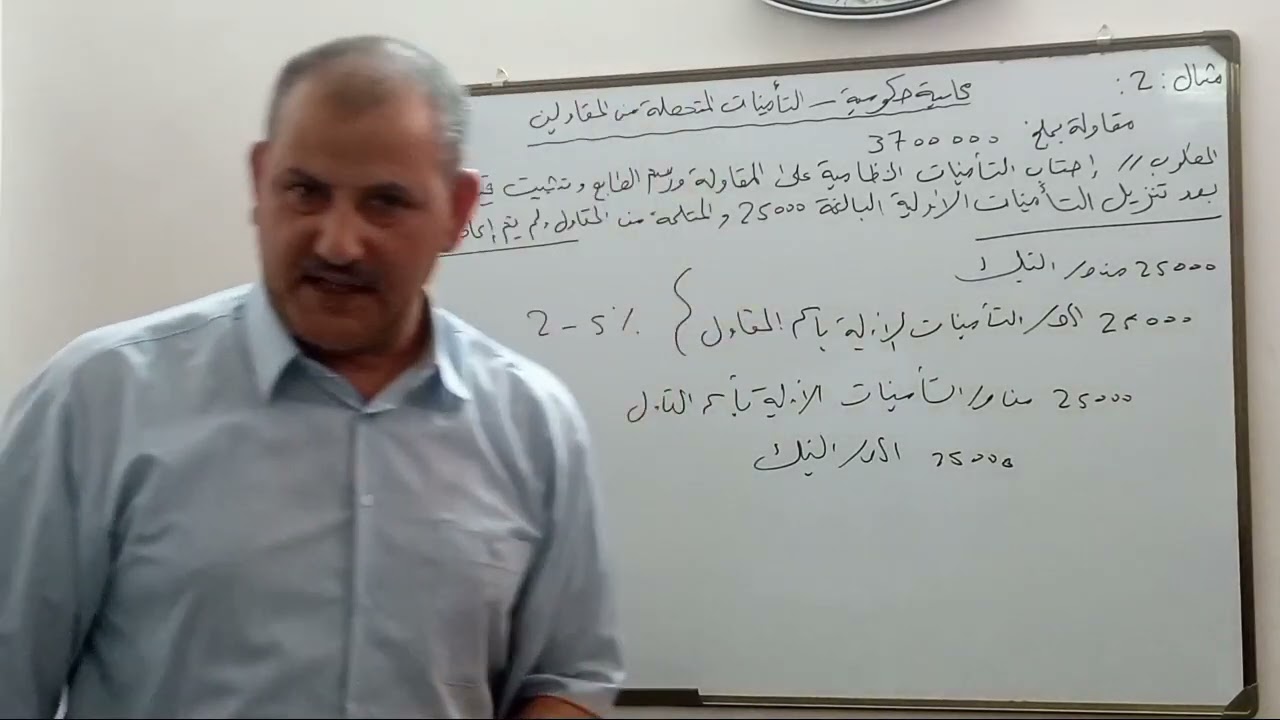 مثال : 2 :
محاسبة حكومية – التأمينات المتحصلة من المقاولين
مقاولة بمبلغ 3700000
المطلوب // إحتساب التأمينات النظامية على المقاولة ورسم الطابع وتثبيت
بعد تنزيل التأمينات الاولية البالغة 25000 والمستلمة من المقاول ولم يتم
25000 من ح/ البنك
25000 الى ح/ التأمينات الاولية بأسم المقاول } 2 – 5 %
25000 من ح/ التأمينات الاولية بأسم المقاول
25000 الى ح/ البنك